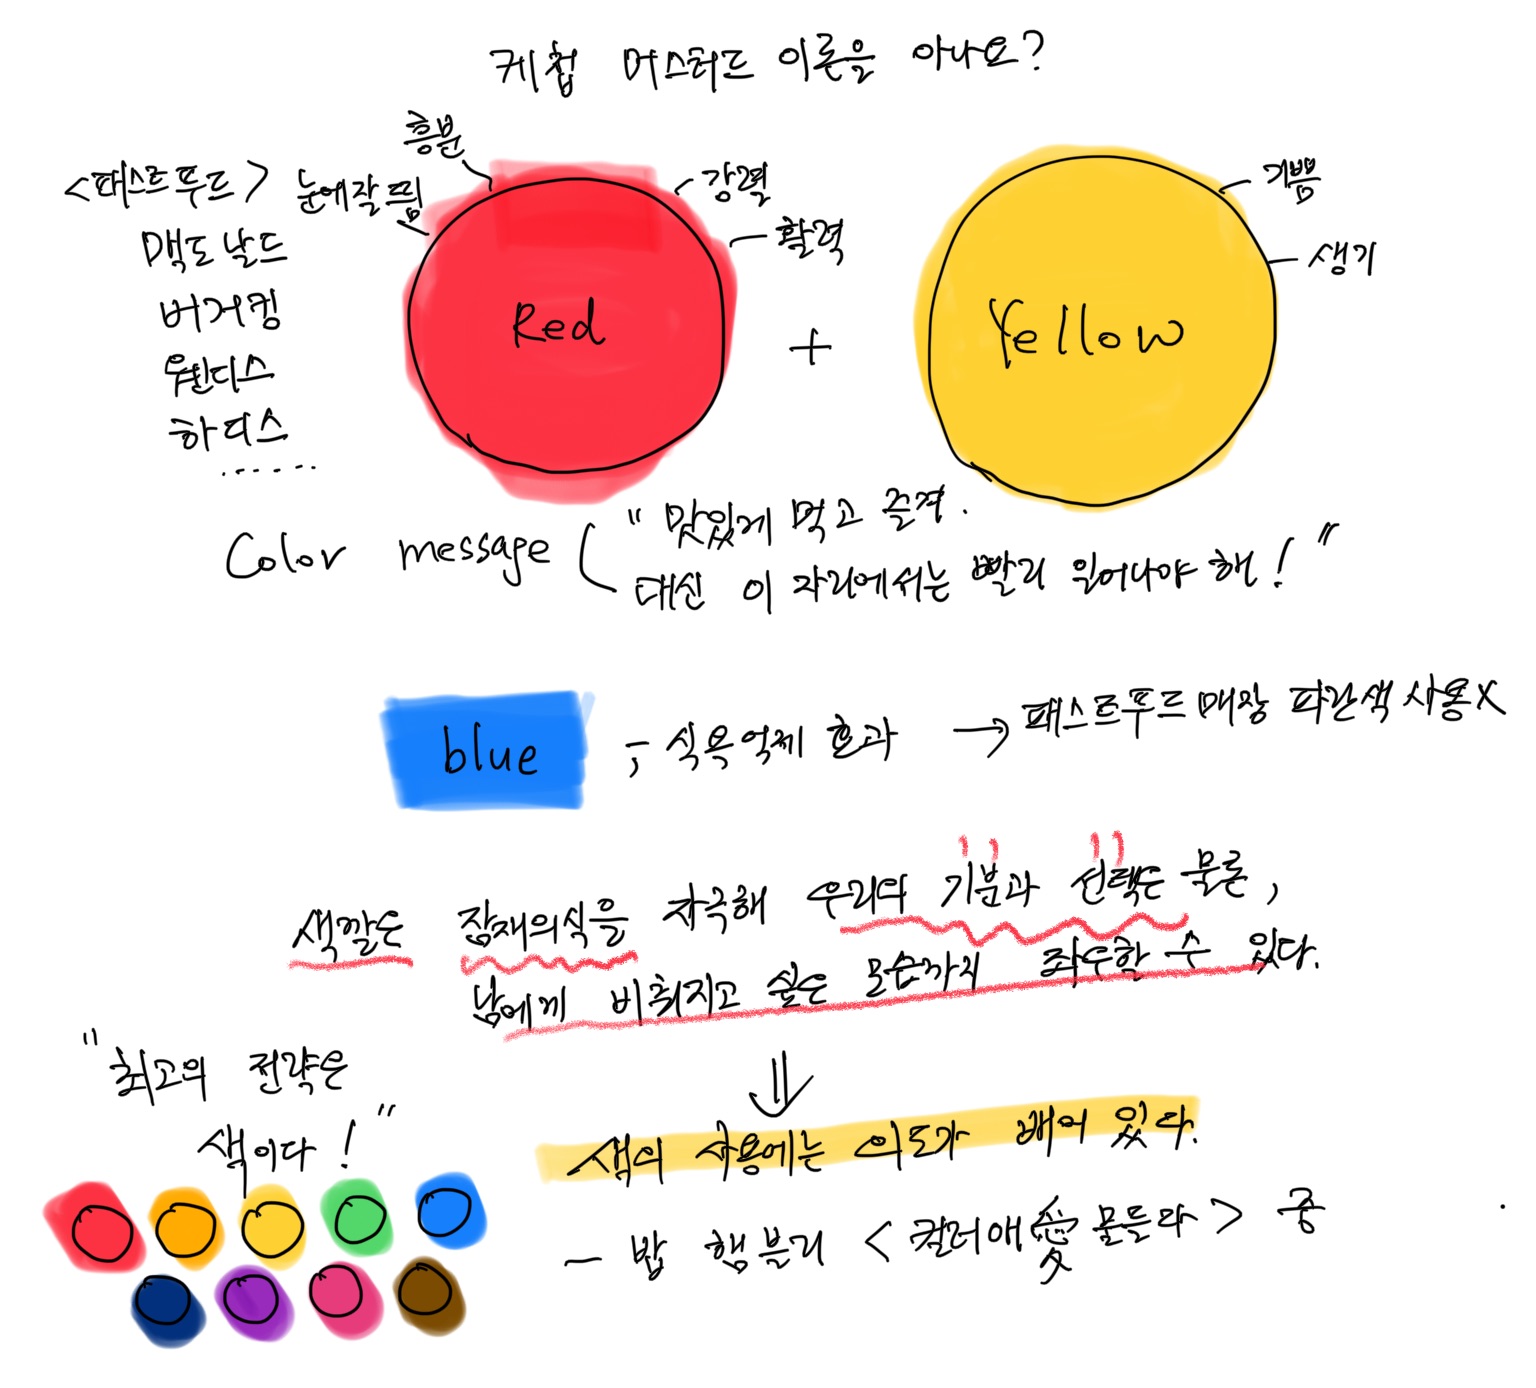 케첩 머스터드 이론을 아나요?
<패스트푸드>
맥도날드
버거킹
웬디스
하디스
......
눈에 잘 띔
흥분
강렬
활력
Red
+
Yellow
기쁨
생기
Color message
"맛있게 먹고 즐겨.
대신 이 자리에서는 빨리 일어나야 해!"
blue
; 식욕억제 효과 → 패스트푸드 매장 파란색 사용X
색깔은 잠재의식을 자극해 우리의 기분과 선택은 물론,
남에게 비춰지고 싶은 모습까지 좌우할 수 있다.
⇓
색의 사용에는 의도가 배어 있다.
- 밥 햄블리 <컬러애愛 물들다> 중
"최고의 전략은
색이다!"